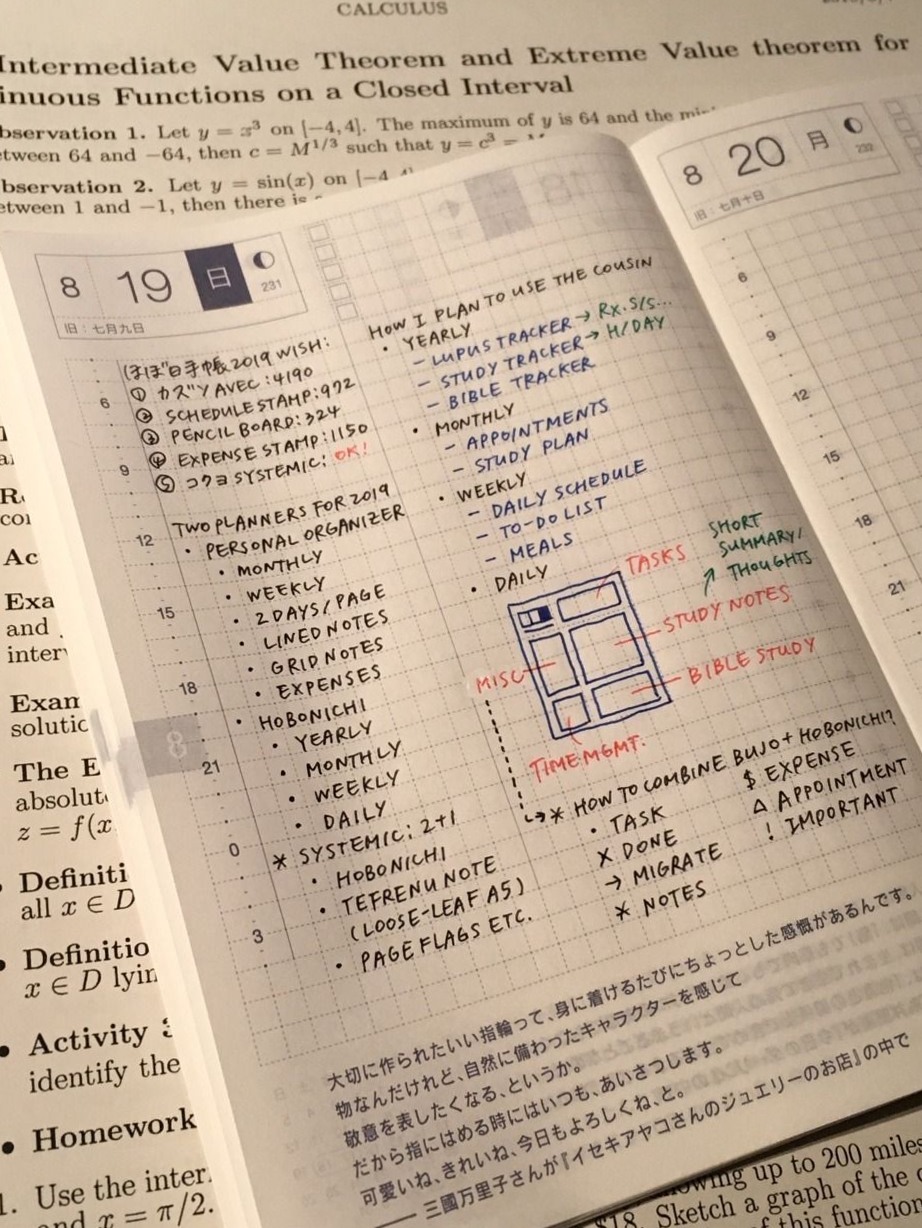 CALCULUS
Intermediate Value Theorem and Extreme Value theorem for
inuous Functions on a Closed Interval
bservation 1. Let y = x³ on [−4, 4]. The maximum of y is 64 and the
etween 64 and −64, then c = M^{1/3} such that y = c³ =
bservation 2. Let y = sin(x) on [−4
etween 1 and −1, then there is
8 19 日
231
旧：七月九日
ほぼ日手帳 2019 WISH:
① カズン AVEC : 4190
② SCHEDULE STAMP: 972
③ PENCIL BOARD: 324
④ EXPENSE STAMP: 1150
⑤ コクヨ SYSTEMIC: OK!
TWO PLANNERS FOR 2019
• PERSONAL ORGANIZER
• MONTHLY
• WEEKLY
• 2 DAYS/PAGE
• LINED NOTES
• GRID NOTES
• EXPENSES
• HOBONICHI
• YEARLY
• MONTHLY
• WEEKLY
• DAILY
* SYSTEMIC: 2+1
• HOBONICHI
• TEFRENU NOTE
(LOOSE-LEAF A5)
• PAGE FLAGS ETC.
6
9
12
15
18
21
0
3
8
HOW I PLAN TO USE THE COUSIN
• YEARLY
- LUPUS TRACKER → RX. S/S...
- STUDY TRACKER → H/DAY
- BIBLE TRACKER
• MONTHLY
- APPOINTMENTS
- STUDY PLAN
• WEEKLY
- DAILY SCHEDULE
- TO-DO LIST
- MEALS
• DAILY
TASKS
SHORT
SUMMARY/
↗ THOUGHTS
STUDY NOTES
MISC
BIBLE STUDY
TIME MGMT.
↳→* HOW TO COMBINE BUJO + HOBONICHI?
• TASK
X DONE
→ MIGRATE
* NOTES
$ EXPENSE
△ APPOINTMENT
! IMPORTANT
大切に作られたいい指輪って、身に着けるたびにちょっとした感慨があるんです。
物なんだけれど、自然に備わったキャラクターを感じて
敬意を表したくなる、というか。
だから指にはめる時にはいつも、あいさつします。
可愛いね、きれいね、今日もよろしくね、と。
── 三國万里子さんが『イセキアヤコさんのジュエリーのお店』の中で
8 20 月
232
旧：七月十日
6
9
12
15
18
21
Ac
Exa
and
inter
Exam
solutio
The E
absolut
z = f(x
• Definiti
all x ∈ D
• Definitio
x ∈ D lyin
• Activity
identify the
• Homework
1. Use the inter
and x = π/2.
owing up to 200 miles
$18. Sketch a graph of the
of this function